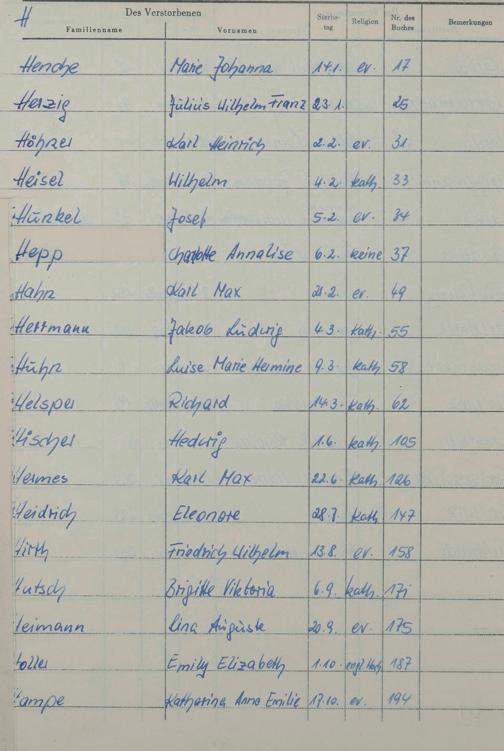 H
Des Verstorbenen
Familienname Vornamen Sterbetag Religion Nr. des Buches Bemerkungen
Henche Marie Johanna 14.1. ev. 17
Herzig Julius Wilhelm Franz 23.1. 25
Höhner Karl Heinrich 2.2. ev. 31
Heisel Wilhelm 4.2. kath. 33
Hunkel Josef 5.2. ev. 34
Hepp Charlotte Annalise 6.2. keine 37
Hahn Karl Max 21.2. ev. 49
Herrmann Jakob Ludwig 4.3. kath. 55
Huhn Luise Marie Hermine 9.3. kath 58
Helsper Richard 14.3. kath. 62
Hischer Hedwig 1.6. kath. 105
Hermes Karl Max 22.6. kath. 126
Heidrich Eleonore 28.7. kath 147
Hirth Friedrich Wilhelm 13.8. ev. 158
Hutsch Brigitte Viktoria 6.9. kath. 171
Heimann Lina Auguste 20.9. ev. 175
Holler Emily Elizabeth 1.10. 187
Hampe Katharina Anna Emilie 17.10. ev. 194